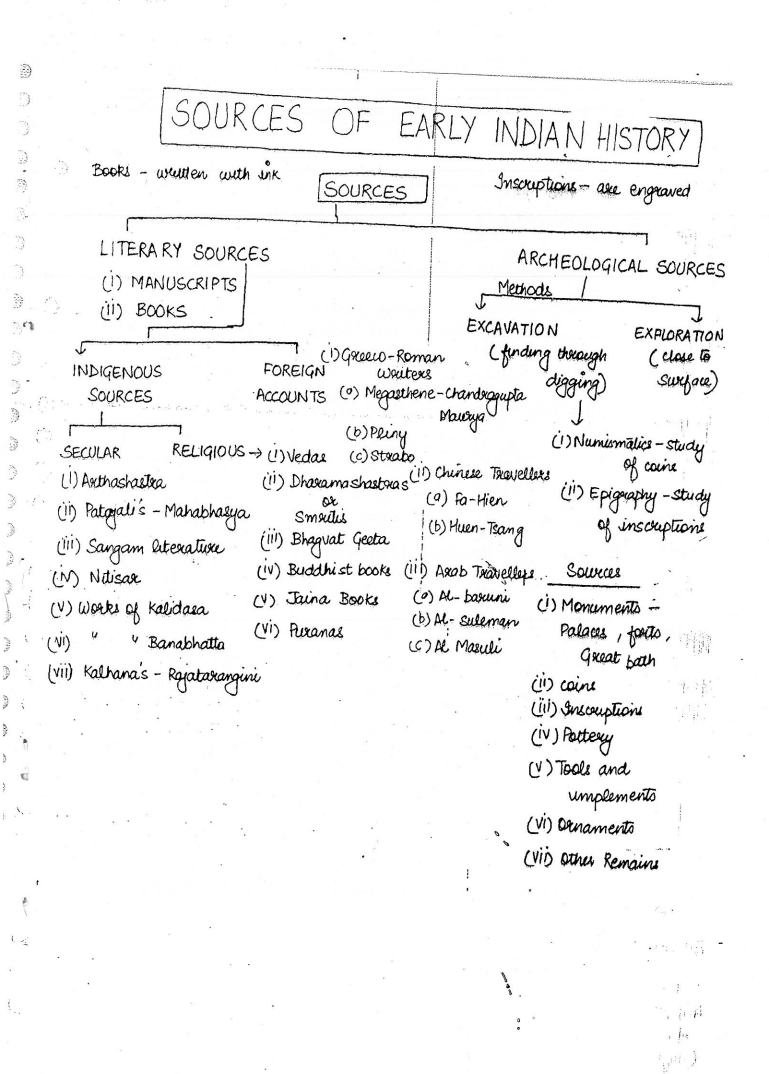 SOURCES OF EARLY INDIAN HISTORY
Books - written with ink
Inscriptions - are engraved
SOURCES
LITERARY SOURCES
(i) MANUSCRIPTS
(ii) BOOKS
ARCHEOLOGICAL SOURCES
Methods
EXCAVATION
(finding through
digging)
EXPLORATION
(close to
surface)
INDIGENOUS
SOURCES
FOREIGN
ACCOUNTS
(i) Greeco-Roman
Writers
(a) Megasthene-Chandragupta
Maurya
(b) Pliny
(c) Strabo
(ii) Chinese Travellers
(a) Fa-Hien
(b) Huen-Tsang
(iii) Arab Travellers
(a) Al-baruni
(b) Al-suleman
(c) Al Masuli
SECULAR
(i) Arthashastra
(ii) Patajali's - Mahabhasya
(iii) Sangam literature
(iv) Nitisar
(v) Works of Kalidasa
(vi) " " Banabhatta
(vii) Kalhana's - Rajatarangini
RELIGIOUS → (i) Vedas
(ii) Dharamashastras
or
Smritis
(iii) Bhagvat Geeta
(iv) Buddhist books
(v) Jaina Books
(vi) Puranas
(i) Numismatics - study
of coins
(ii) Epigraphy - study
of inscriptions
Sources
(i) Monuments -
Palaces, forts,
Great bath
(ii) coins
(iii) Inscriptions
(iv) Pottery
(v) Tools and
implements
(vi) Ornaments
(vii) Other Remains